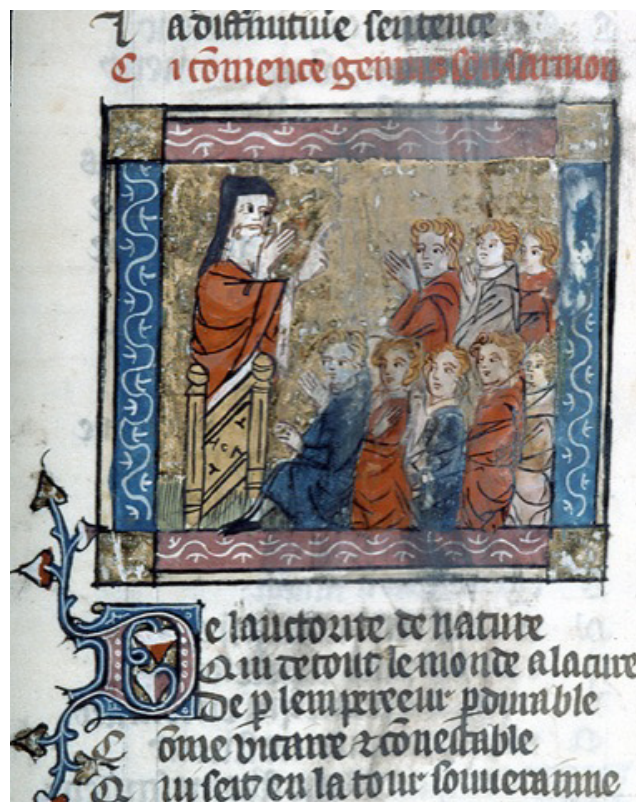 La diffinitive sentence
Ci cōmence genius son sarmon
De lauctorite de nature
Qui de tout le monde a la cure
De ꝑ lempereeur ꝑdurable
Cōme vicaire ⁊ cōnestable
Qui seit en la tour souverainne